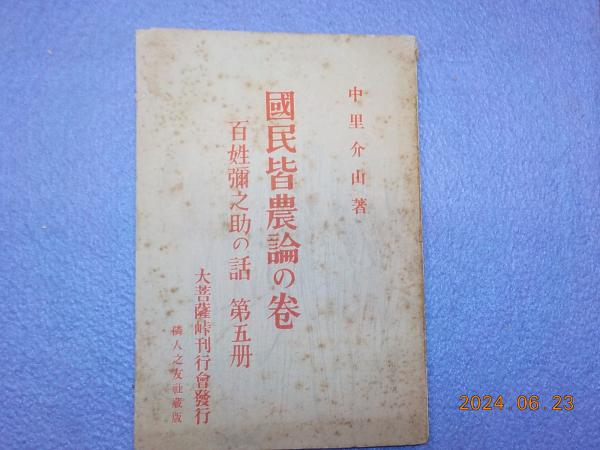 中里介山著
國民皆農論の卷
百姓彌之助の話 第五册
大菩薩峠刊行會發行
隣人之友社蔵版
2024.06.23